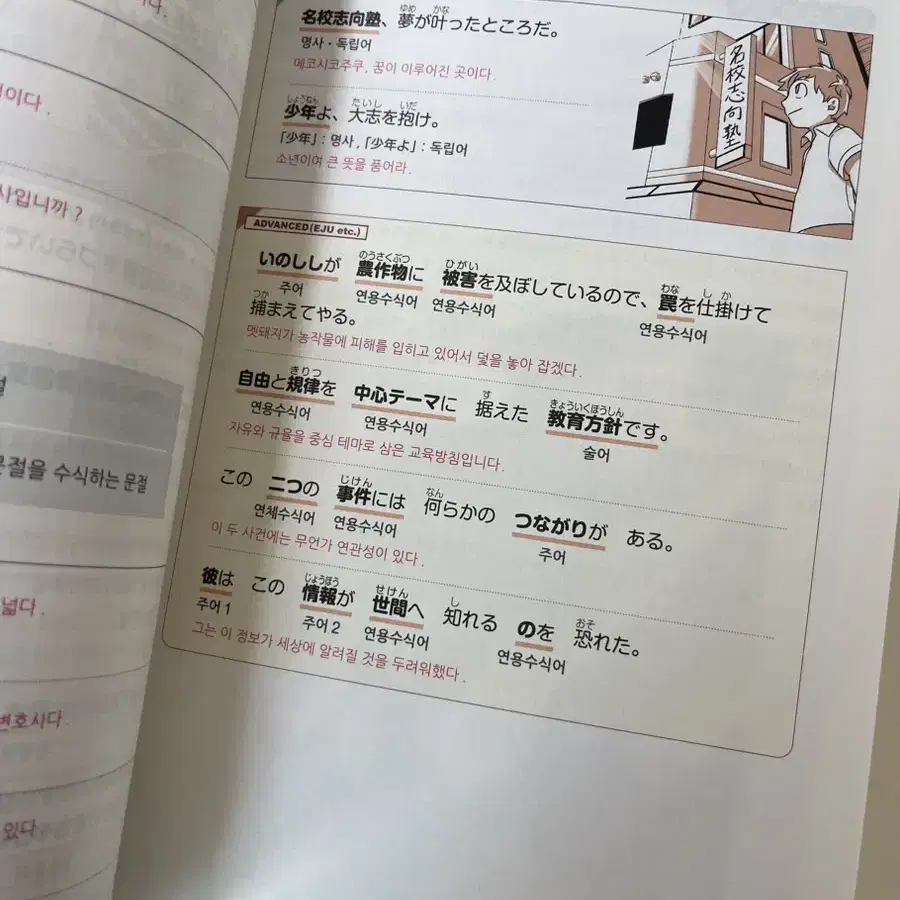 이다.
사입니까 ?
절을 수식하는 문절
넓다 .
변호사다 .
있다
ゆめ かな
名校志向塾、夢が叶ったところだ。
명사・독립어
메코시코주쿠, 꿈이 이루어진 곳이다.
しょうねん たいし いだ
少年よ、大志を抱け。
「少年」: 명사 ,「少年よ」: 독립어
소년이여 큰 뜻을 품어라.
名校志向塾
ADVANCED(EJU etc.)
のうさくぶつ ひがい わな しか
いのししが 農作物に 被害を及ぼしているので、罠を仕掛けて
주어 연용수식어 연용수식어 연용수식어
つか
捕まえてやる。
멧돼지가 농작물에 피해를 입히고 있어서 덫을 놓아 잡겠다 .
きりつ す きょういくほうしん
自由と規律を 中心テーマに 据えた 教育方針です。
연용수식어 연용수식어 술어
자유와 규율을 중심 테마로 삼은 교육방침입니다.
じけん なん
この 二つの 事件には 何らかの つながりが ある。
연체수식어 연용수식어 주어
이 두 사건에는 무언가 연관성이 있다 .
じょうほう せけん し おそ
彼は この 情報が 世間へ 知れる のを 恐れた。
주어 1 주어 2 연용수식어 연용수식어
그는 이 정보가 세상에 알려질 것을 두려워했다 .